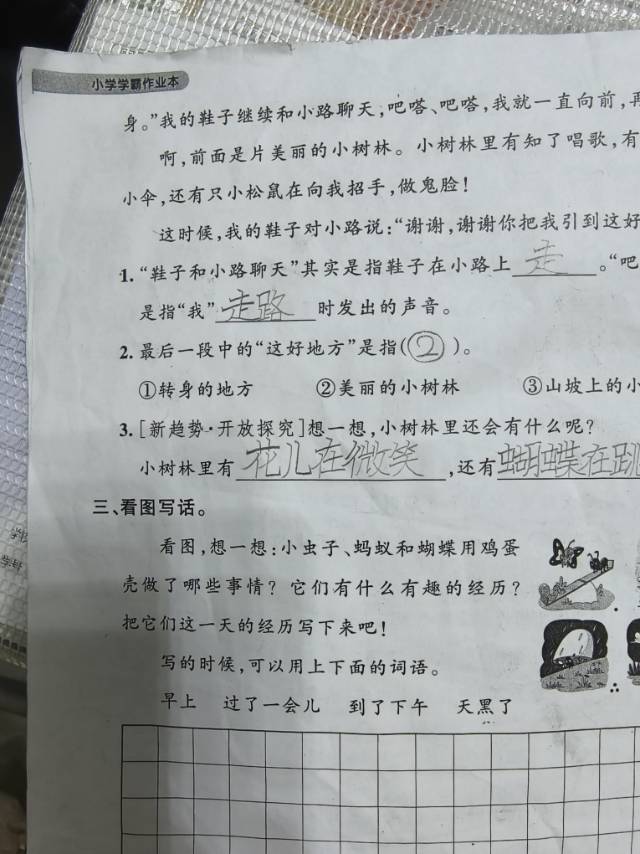 小学学霸作业本
身。”我的鞋子继续和小路聊天,吧嗒、吧嗒,我就一直向前,再
啊,前面是片美丽的小树林。小树林里有知了唱歌,有
小伞,还有只小松鼠在向我招手,做鬼脸!
这时候,我的鞋子对小路说:“谢谢,谢谢你把我引到这好
1.“鞋子和小路聊天”其实是指鞋子在小路上 走 。“吧
是指“我” 走路 时发出的声音。
2. 最后一段中的“这好地方”是指(②)。
①转身的地方 ②美丽的小树林 ③山坡上的小
3.[新趋势·开放探究]想一想,小树林里还会有什么呢?
小树林里有 花儿在微笑 ,还有 蝴蝶在跳
三、看图写话。
看图,想一想:小虫子、蚂蚁和蝴蝶用鸡蛋
壳做了哪些事情?它们有什么有趣的经历?
把它们这一天的经历写下来吧!
写的时候,可以用上下面的词语。
早上 过了一会儿 到了下午 天黑了